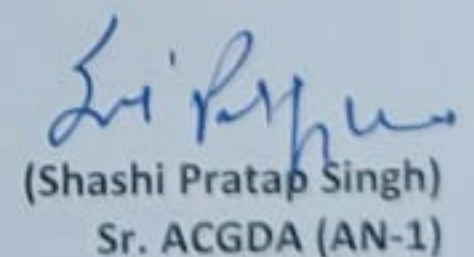 (Shashi Pratap Singh)
Sr. ACGDA (AN-1)